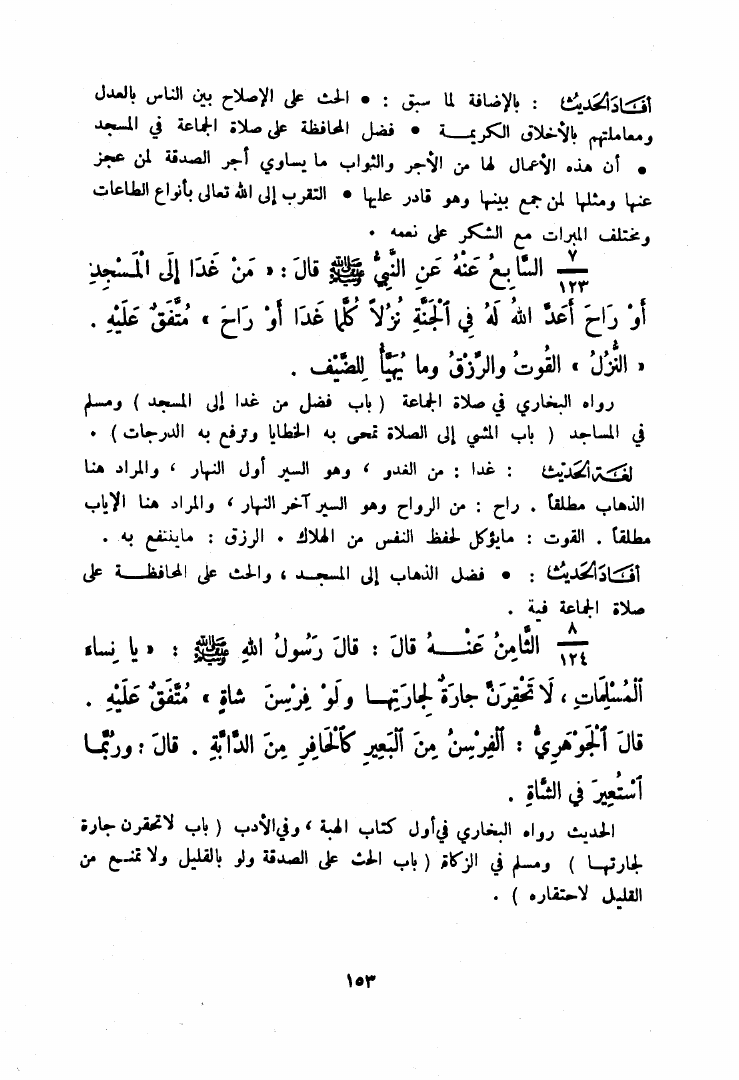 أفاد الحديث : بالإضافة لما سبق : • الحث على الإصلاح بين الناس بالعدل
ومعاملتهم بالأخلاق الكريمة • فضل المحافظة على صلاة الجماعة في المسجد
• أن هذه الأعمال لها من الأجر والثواب ما يساوي أجر الصدقة لمن عجز
عنها ومثلها لمن جمع بينها وهو قادر عليها • التقرب إلى الله تعالى بأنواع الطاعات
ومختلف المبرات مع الشكر على نعمه .
٧/١٢٣ السَّابِعُ عَنْهُ عَنِ النَّبِيِّ ﷺ قالَ : « مَنْ غَدَا إلَى الْمَسْجِدِ
أَوْ رَاحَ أَعَدَّ اللهُ لَهُ فِي الْجَنَّةِ نُزُلاً كُلَّمَا غَدَا أَوْ رَاحَ » مُتَّفَقٌ عَلَيْهِ .
« النُّزُلُ » القُوتُ والرِّزْقُ وما يُهَيَّأُ لِلضَّيْف .
رواه البخاري في صلاة الجماعة ( باب فضل من غدا إلى المسجد ) ومسلم
في المساجد ( باب المشي إلى الصلاة تمحى به الخطايا وترفع به الدرجات ) .
لغة الحديث : غدا : من الغدو ، وهو السير أول النهار ، والمراد هنا
الذهاب مطلقاً . راح : من الرواح وهو السير آخر النهار ، والمراد هنا الإياب
مطلقاً . القوت : مايؤكل لحفظ النفس من الهلاك . الرزق : ماينتفع به .
أفاد الحديث : • فضل الذهاب إلى المسجد ، والحث على المحافظة على
صلاة الجماعة فية .
٨/١٢٤ الثَّامِنُ عَنْهُ قالَ : قالَ رَسُولُ اللهِ ﷺ : « يا نِساء
الْمُسْلِمَاتِ ، لَا تَحْقِرَنَّ جارَةٌ لِجارَتِها ولَوْ فِرْسِنَ شاةٍ » مُتَّفَقٌ عَلَيْهِ .
قالَ الْجَوْهَرِيُّ : الفِرْسِنُ مِنَ الْبَعِيرِ كَالْحَافِرِ مِنَ الدَّابَّةِ . قالَ : ورُبَّما
اسْتُعِيرَ في الشَّاةِ .
الحديث رواه البخاري في أول كتاب الهبة ، وفي الأدب ( باب لا تحقرن جارة
لجارتها ) ومسلم في الزكاة ( باب الحث على الصدقة ولو بالقليل ولا تمتنع من
القليل لاحتقاره ) .
١٥٣